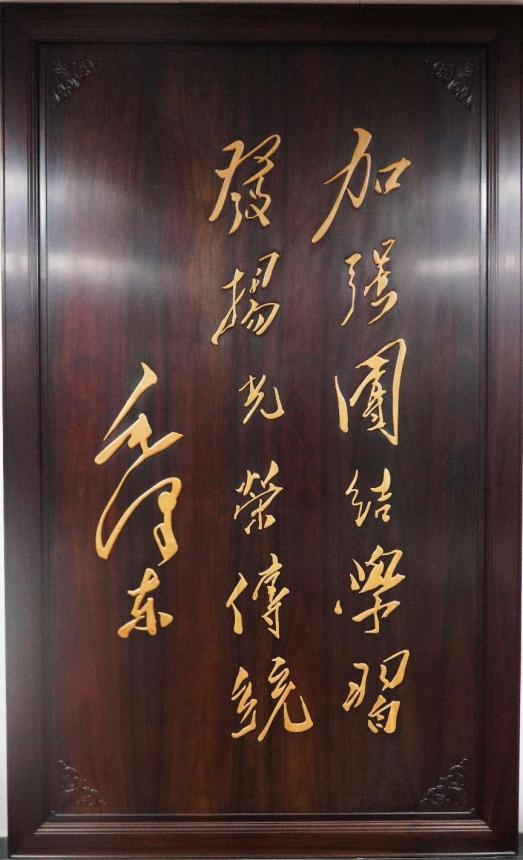 加强團结學習
發揚光榮傳統
毛泽东